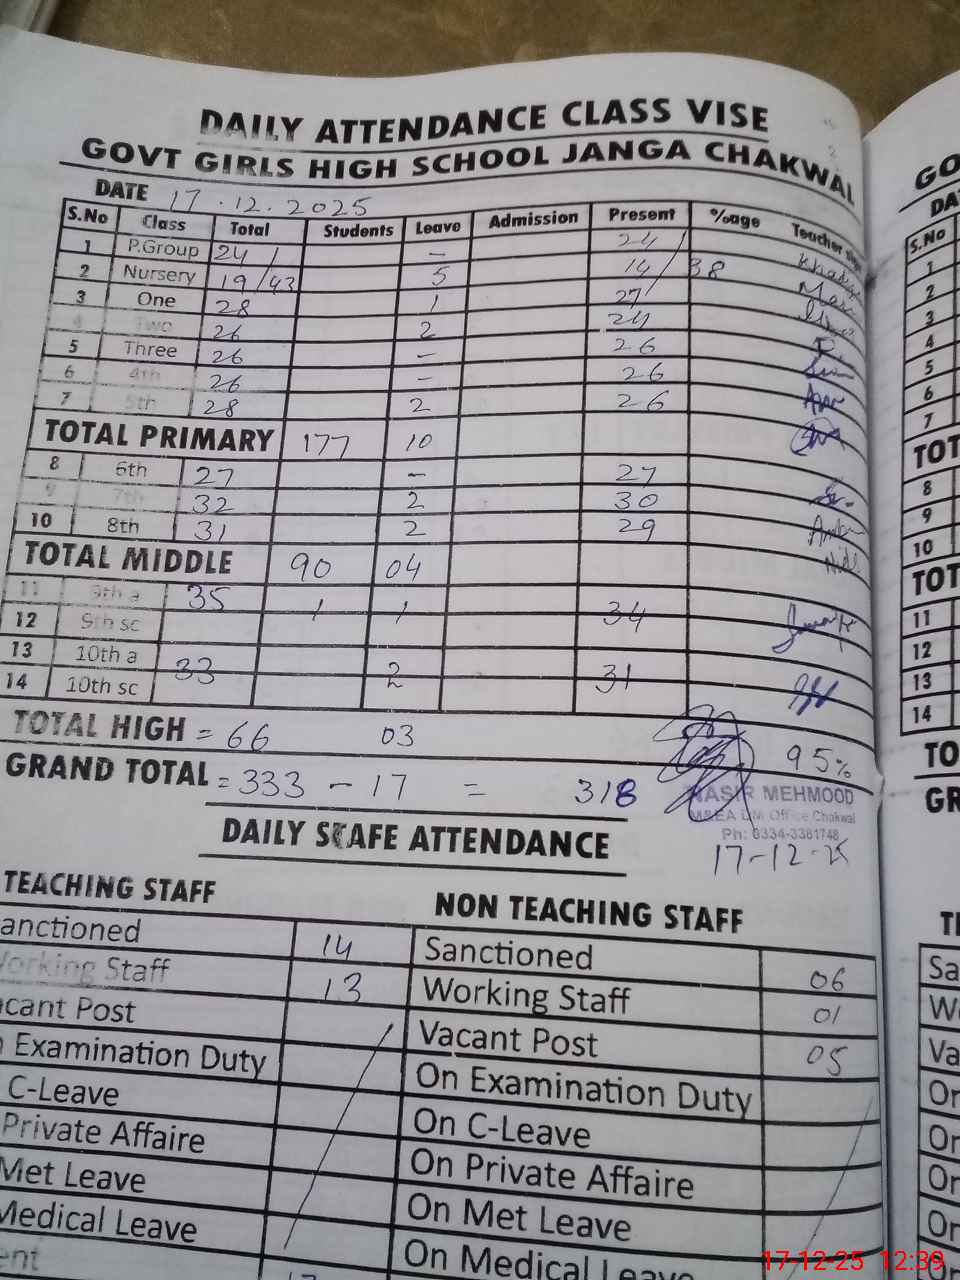 DAILY ATTENDANCE CLASS VISE
GOVT GIRLS HIGH SCHOOL JANGA CHAKWAL
DATE 17.12.2025
S.No Class Total Students Leave Admission Present %age Teacher
1 P.Group 24 / - 24 /
2 Nursery 19/43 5 14 / 38
3 One 28 1 27
4 Two 26 2 24
5 Three 26 - 26
6 4th 26 - 26
7 5th 28 2 26
TOTAL PRIMARY 177 10
8 6th 27 - 27
9 7th 32 2 30
10 8th 31 2 29
TOTAL MIDDLE 90 04
11 9th a 35 1 1 34
12 9th sc
13 10th a 33 2 31
14 10th sc
TOTAL HIGH = 66 03 95%
GRAND TOTAL = 333 - 17 = 318
NASIR MEHMOOD
MSEA DM Office Chakwal
Ph: 0334-3381748
17-12-25
DAILY STAFE ATTENDANCE
TEACHING STAFF NON TEACHING STAFF
anctioned 14 Sanctioned 06
Working Staff 13 Working Staff 01
acant Post Vacant Post 05
Examination Duty On Examination Duty
C-Leave On C-Leave
Private Affaire On Private Affaire
Met Leave On Met Leave
Medical Leave On Medical Leave
ent
17-12-25 12:39
GO
DA
S.No
1
2
3
4
5
6
7
TOT
8
9
10
TOT
11
12
13
14
TO
GR
TE
Sa
Wo
Va
On
On
On
On
On